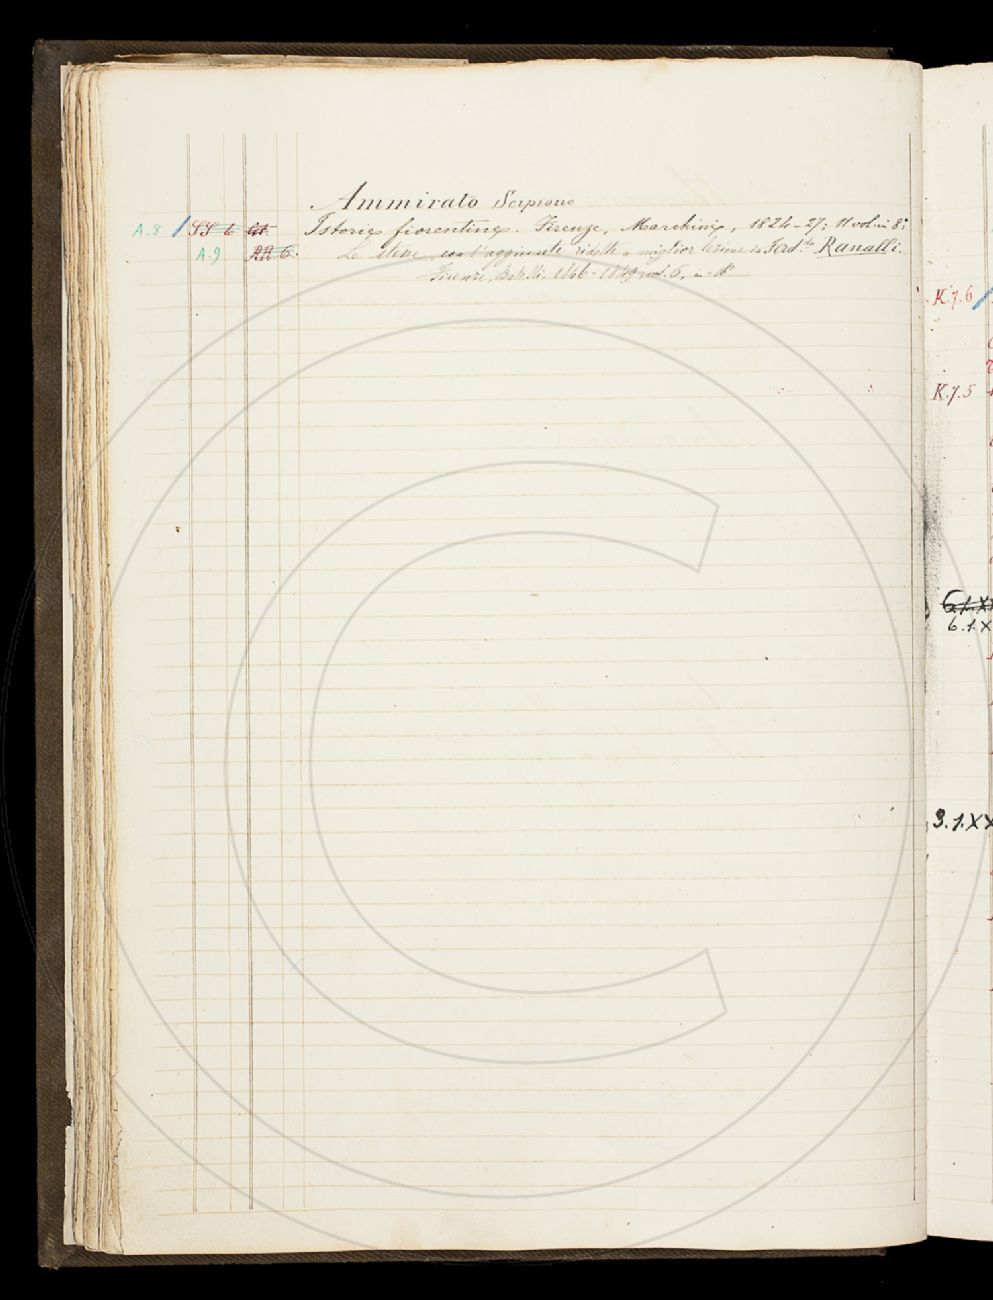 Ammirato Scipione
A.8 SS 6 Istorie fiorentine. Firenze, Marchini, 1824-27; 11 vol. in 8°
A.9 AR 6. Le stesse, con l'aggiunte ridotte a miglior lezione da Ferd.do Ranalli.
Firenze, Batelli, 1846-1849, vol. 6, in-
K.7.6
K.7.5
6.1.XX
6.1.X
3.1.XX